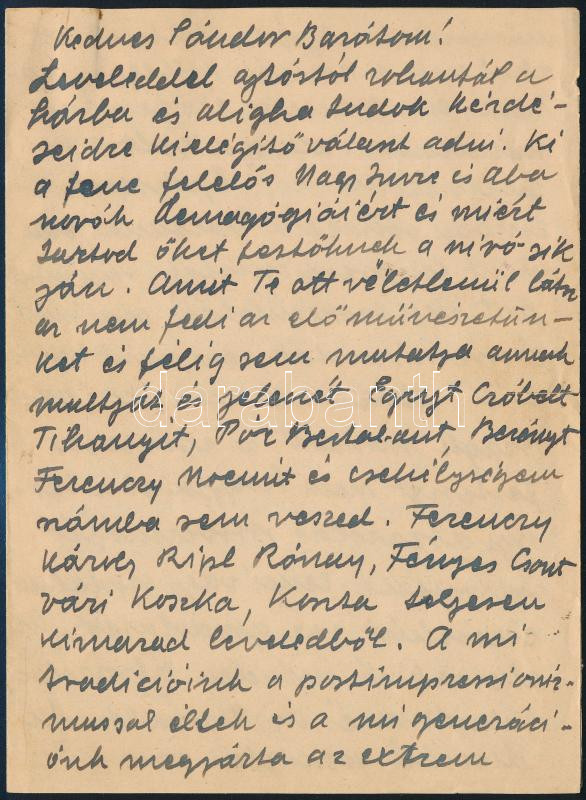 Kedves Sándor Barátom!
Leveleddel ajtóstól rohantál a
házba és aligha tudok kérdé-
seidre kielégítő választ adni. Ki
a fene felelős Nagy Imre és Aba
Novák demagógiáiért és miért
tartod őket festőknek a nívó sík
ján. Amit Te ott véletlenül látsz
az nem fedi az élő művészetün-
ket és félig sem mutatja annak
multját és jelenét. Egryt Czóbelt
Tihanyit, Pór Bertalant, Berényt
Ferenczy Noemit és csekélységem
számba sem veszed. Ferenczy
Károly Ripl Rónay, Fényes Csont
vári Koszka, Koszta teljesen
kimarad leveledből. A mi
tradicióink a postimpressioniz-
mussal éltek és a mi generáci-
ónk megjárta az extrem
darabanth